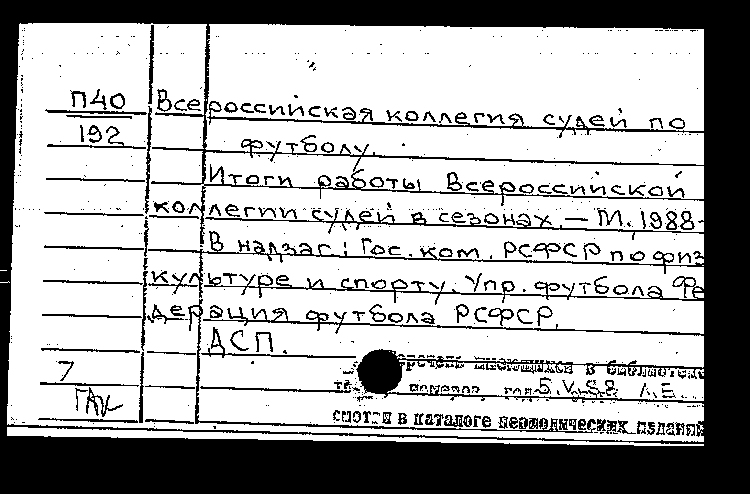 П40 Всероссийская коллегия судей по
192 футболу.
Итоги работы Всероссийской
коллегии судей в сезонах. — М., 1988-
В надзаг.: Гос. ком. РСФСР по физ
культуре и спорту. Упр. футбола Фе
дерация футбола РСФСР.
ДСП.
7 имеющихся в библиотеке
номеров, 5.V.88 Л.Е.
ГАК смотри в каталоге периодических изданий